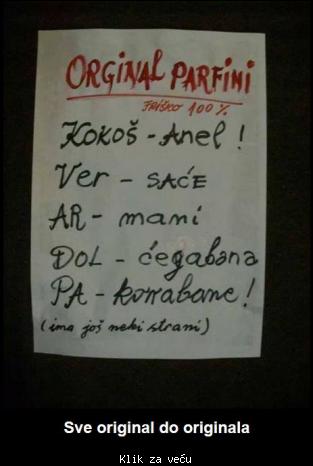 ORGINAL PARFINI
FRIŠKO 100%
Kokoš - Anel !
Ver - SAĆE
AR - mami
ĐOL - ćegabana
PA - korrabane!
(ima još neki strani)
Sve original do originala
Klik za veću